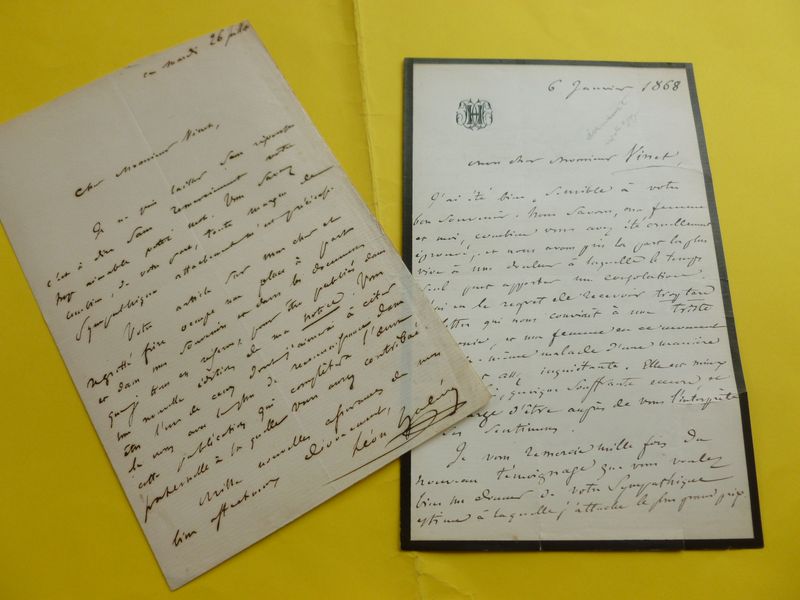 ce mardi 26
Cher Monsieur Vinet,
Je ne puis laisser sans réponse
c'est à dire sans remerciement votre
trop aimable petit mot. Vous savez
combien, de votre part, toute marque de
sympathique attachement m'est précieuse.
Votre article sur mon cher et
regretté frère occupe une place à part
et dans mes souvenirs et dans les documents
que je tiens en réserve, pour être publiés dans
une nouvelle édition de ma notice. Vous
êtes l'un de ceux dont j'aimerai à citer
le nom avec le plus de reconnaissance dans
cette publication qui complètera l'œuvre
fraternelle à laquelle vous avez contribué.
Mille nouvelles assurances de mon
bien affectueux dévouement,
Léon Halévy
6 Janvier 1868
H
mon cher Monsieur Vinet,
J'ai été bien sensible à votre
bon souvenir. Nous savons, ma femme
et moi, combien vous avez été cruellement
éprouvé, et nous avons pris la part la plus
vive à une douleur à laquelle le temps
seul peut apporter un consolation.
eu le regret de recevoir trop tard
lettre qui nous conviait à une triste
et ma femme en ce moment
même malade d'une manière
inquiétante. Elle est mieux
quoique souffrante encore et
d'être auprès de vous l'interprète
sentimens.
Je vous remercie mille fois du
nouveau témoignage que vous voulez
bien me donner de votre sympathique
estime à laquelle j'attache le plus grand prix